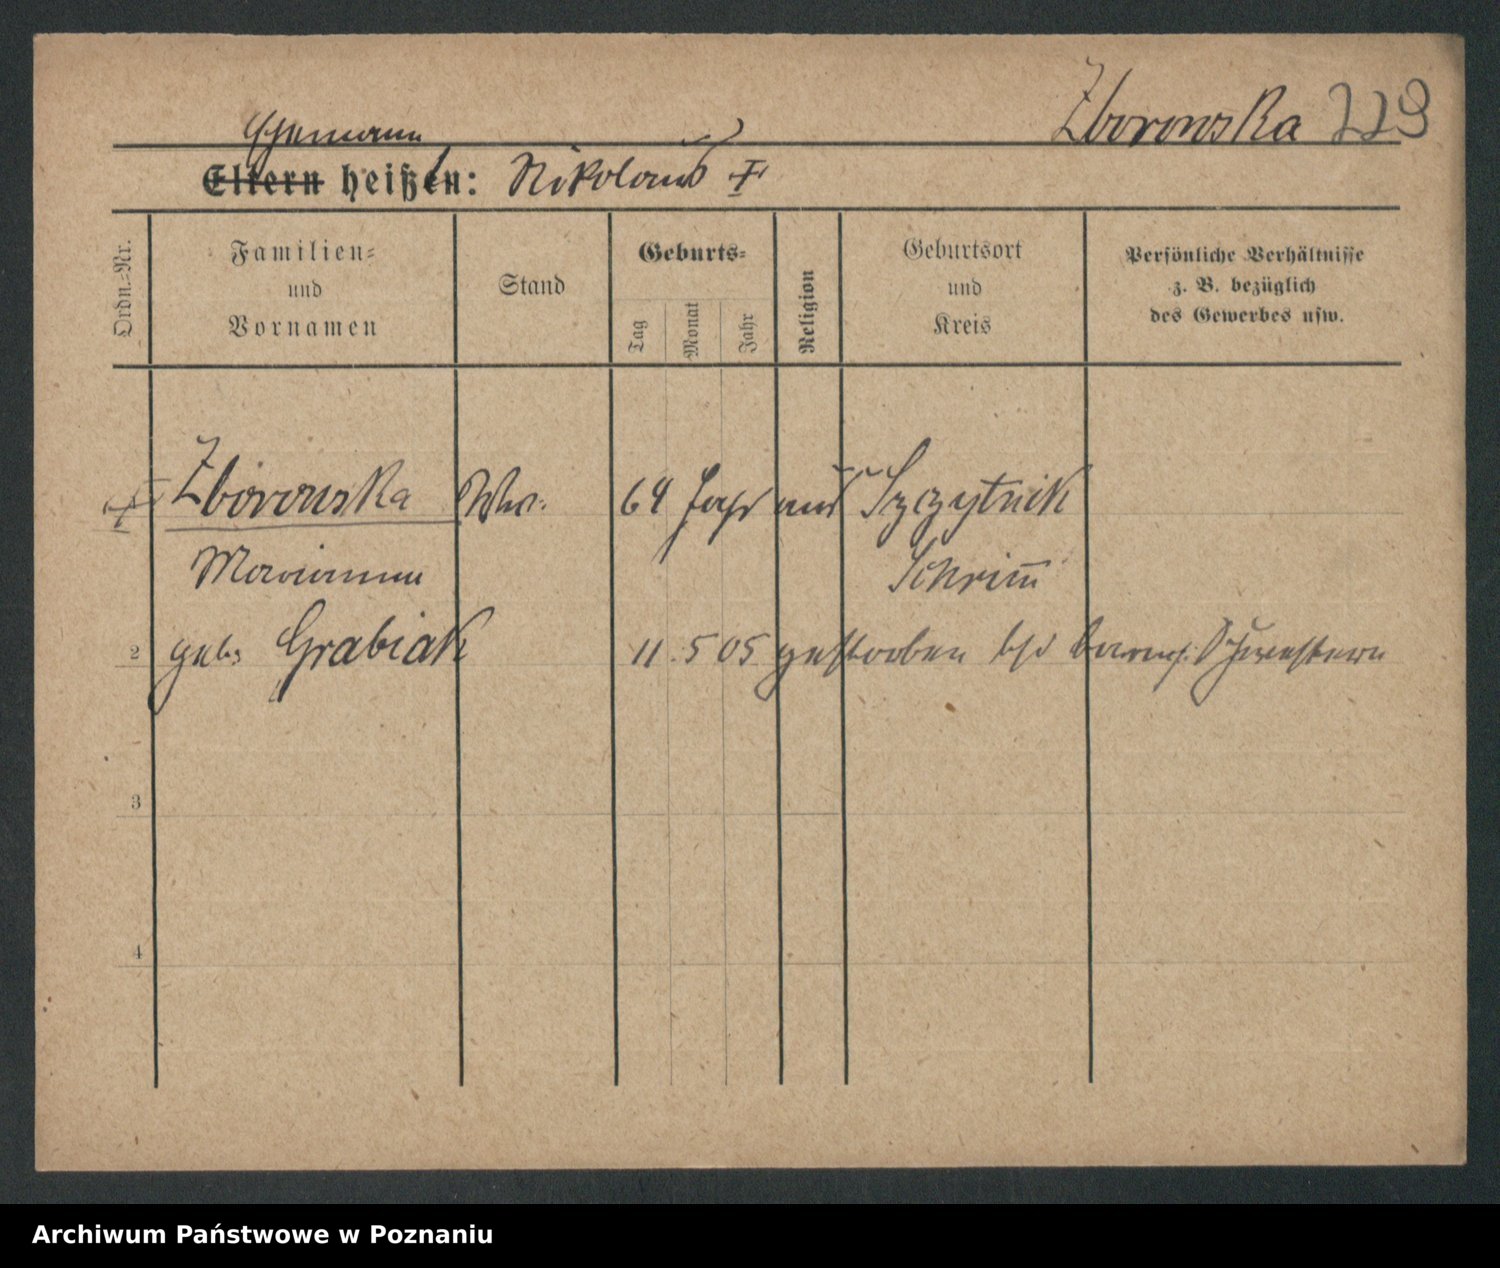 Zborowska 229
Ehemann
Eltern heißen: Nikolaus †
Ordn.-Nr.
Familien-
und
Vornamen
Stand
Geburts-
Tag
Monat
Jahr
Religion
Geburtsort
und
Kreis
Persönliche Verhältnisse
z. B. bezüglich
des Gewerbes usw.
† Zborowska Ww. 64 Jahr aus Szczytnik
Marianna Schrimm
2 geb. Grabiak 11. 5 05 gestorben bei barmh. Schwestern
3
4
Archiwum Państwowe w Poznaniu